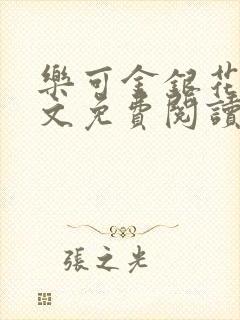 樂可金銀花
文免費閱讀
張之光